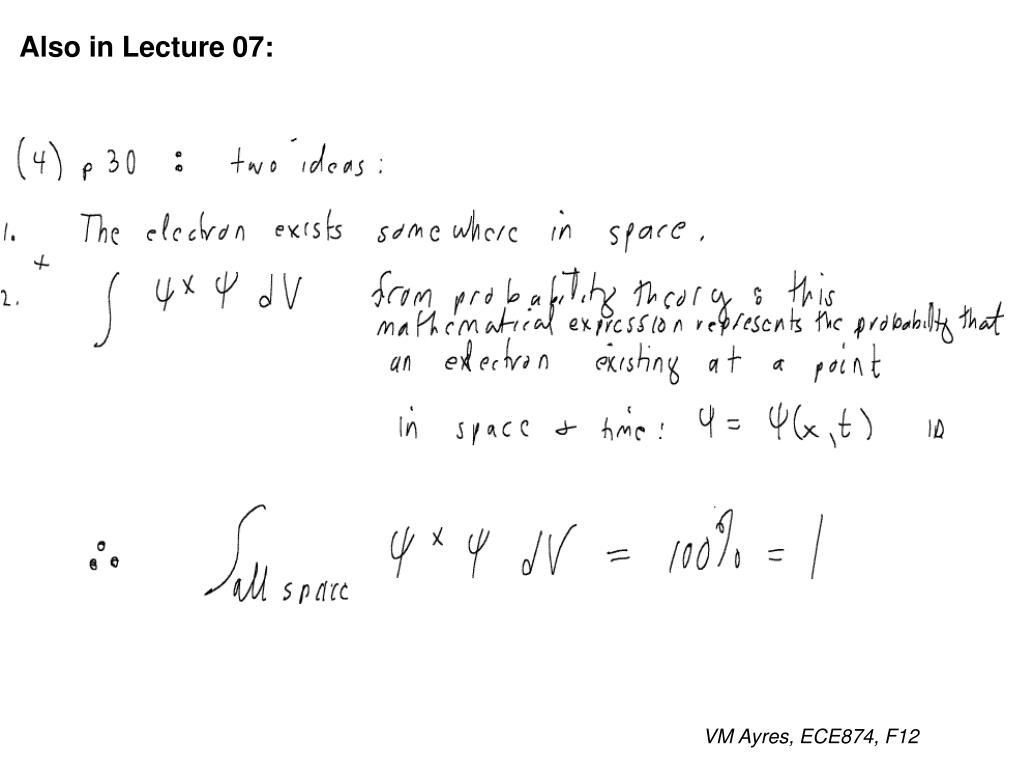 Also in Lecture 07:
(4) p 30 : two ideas:
1. The electron exists somewhere in space.
+
2. ∫ ψ* ψ dV from probability theory : this
mathematical expression represents the probability that
an electron existing at a point
in space + time: ψ = ψ(x,t) 1D
∴ ∫all space ψ* ψ dV = 100% = 1
VM Ayres, ECE874, F12